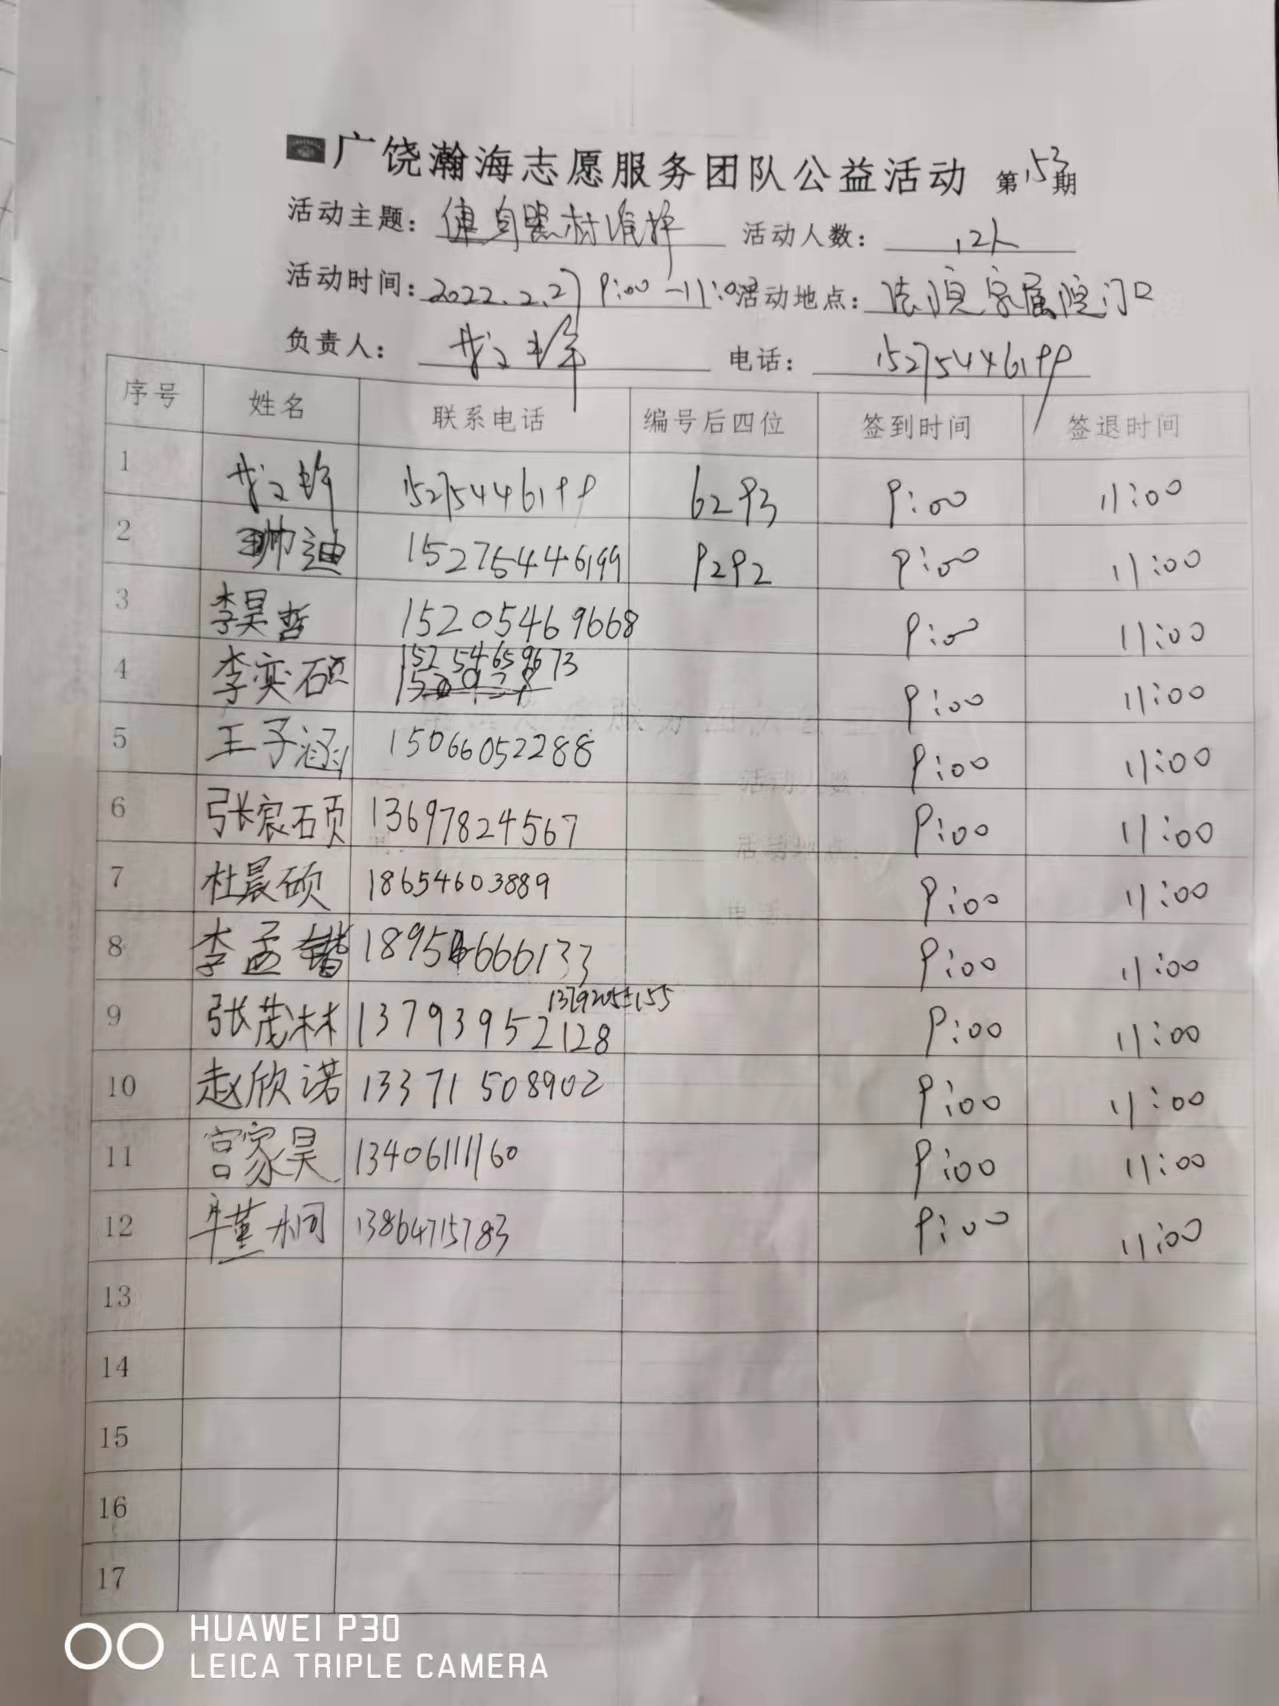 广饶瀚海志愿服务团队公益活动 第153期
活动主题：健身器材维护 活动人数：12人
活动时间：2022.2.27 9:00-11:00 活动地点：法院家属院门口
负责人： 电话：15275446199
序号 姓名 联系电话 编号后四位 签到时间 签退时间
1 15275446199 6293 9:00 11:00
2 帅迪 15275446199 9292 9:00 11:00
3 李昊哲 15205469668 9:00 11:00
4 李奕硕 15254659673 9:00 11:00
5 王子涵 15066052288 9:00 11:00
6 张宸硕 13697824567 9:00 11:00
7 杜晨硕 18654603889 9:00 11:00
8 李孟锴 18954666133 9:00 11:00
9 张茂林 13793952128 9:00 11:00
10 赵欣诺 13371508902 9:00 11:00
11 宫家昊 13406111160 9:00 11:00
12 13864715783 9:00 11:00
13
14
15
16
17
HUAWEI P30
LEICA TRIPLE CAMERA